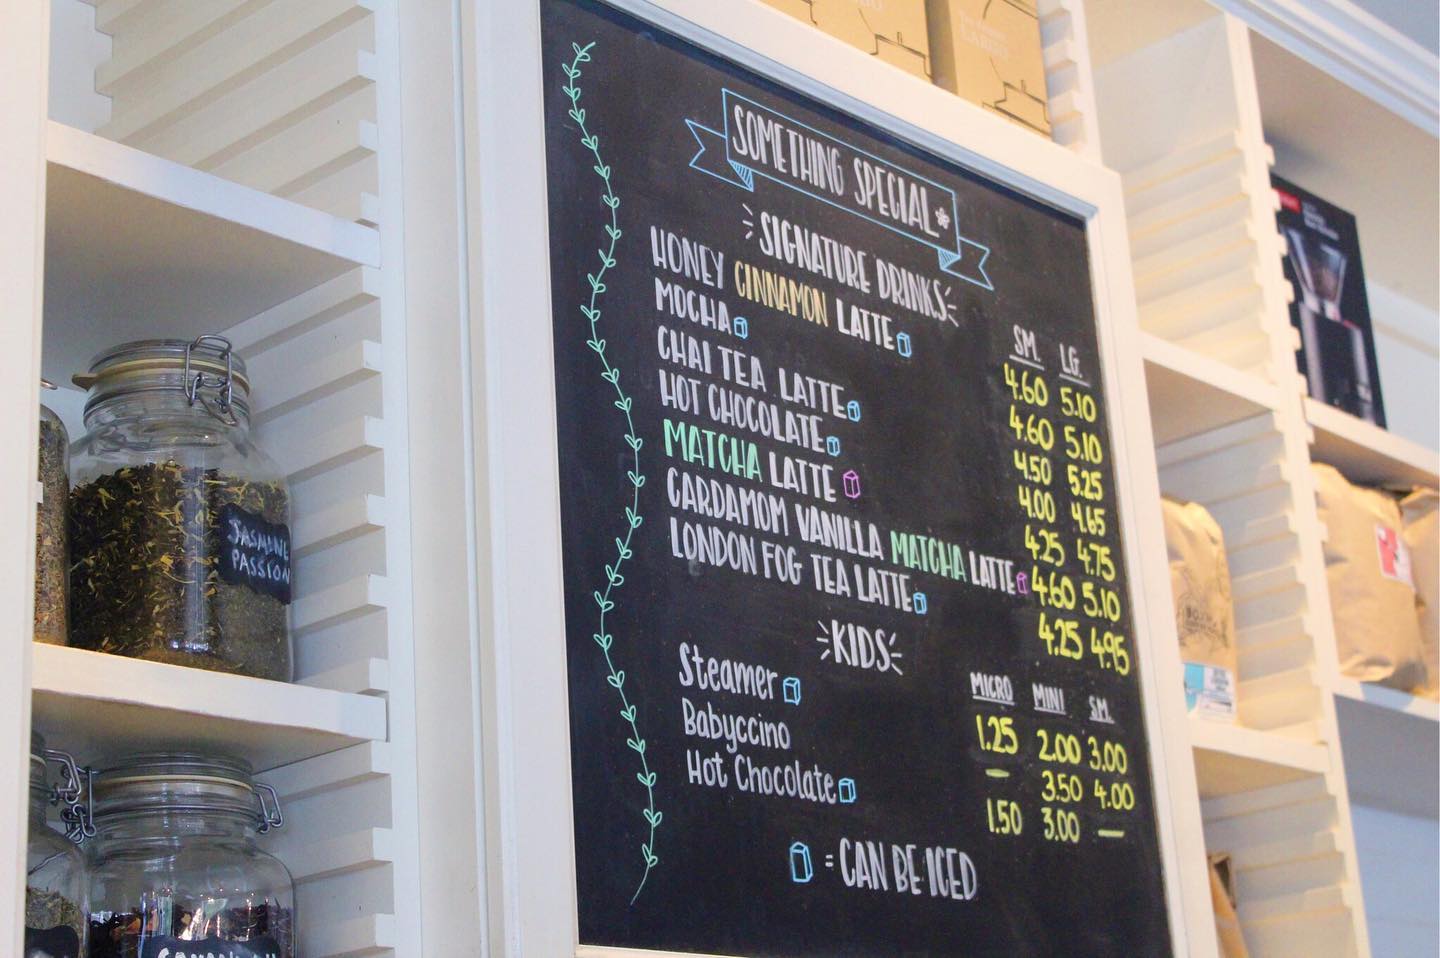 SOMETHING SPECIAL
SIGNATURE DRINKS
SM. LG.
HONEY CINNAMON LATTE 4.60 5.10
MOCHA 4.60 5.10
CHAI TEA LATTE 4.50 5.25
HOT CHOCOLATE 4.00 4.65
MATCHA LATTE 4.25 4.75
CARDAMOM VANILLA MATCHA LATTE 4.60 5.10
LONDON FOG TEA LATTE 4.25 4.95
KIDS
MICRO MINI SM.
Steamer 1.25 2.00 3.00
Babyccino — 3.50 4.00
Hot Chocolate 1.50 3.00 —
= CAN BE ICED
JASMINE
PASSION